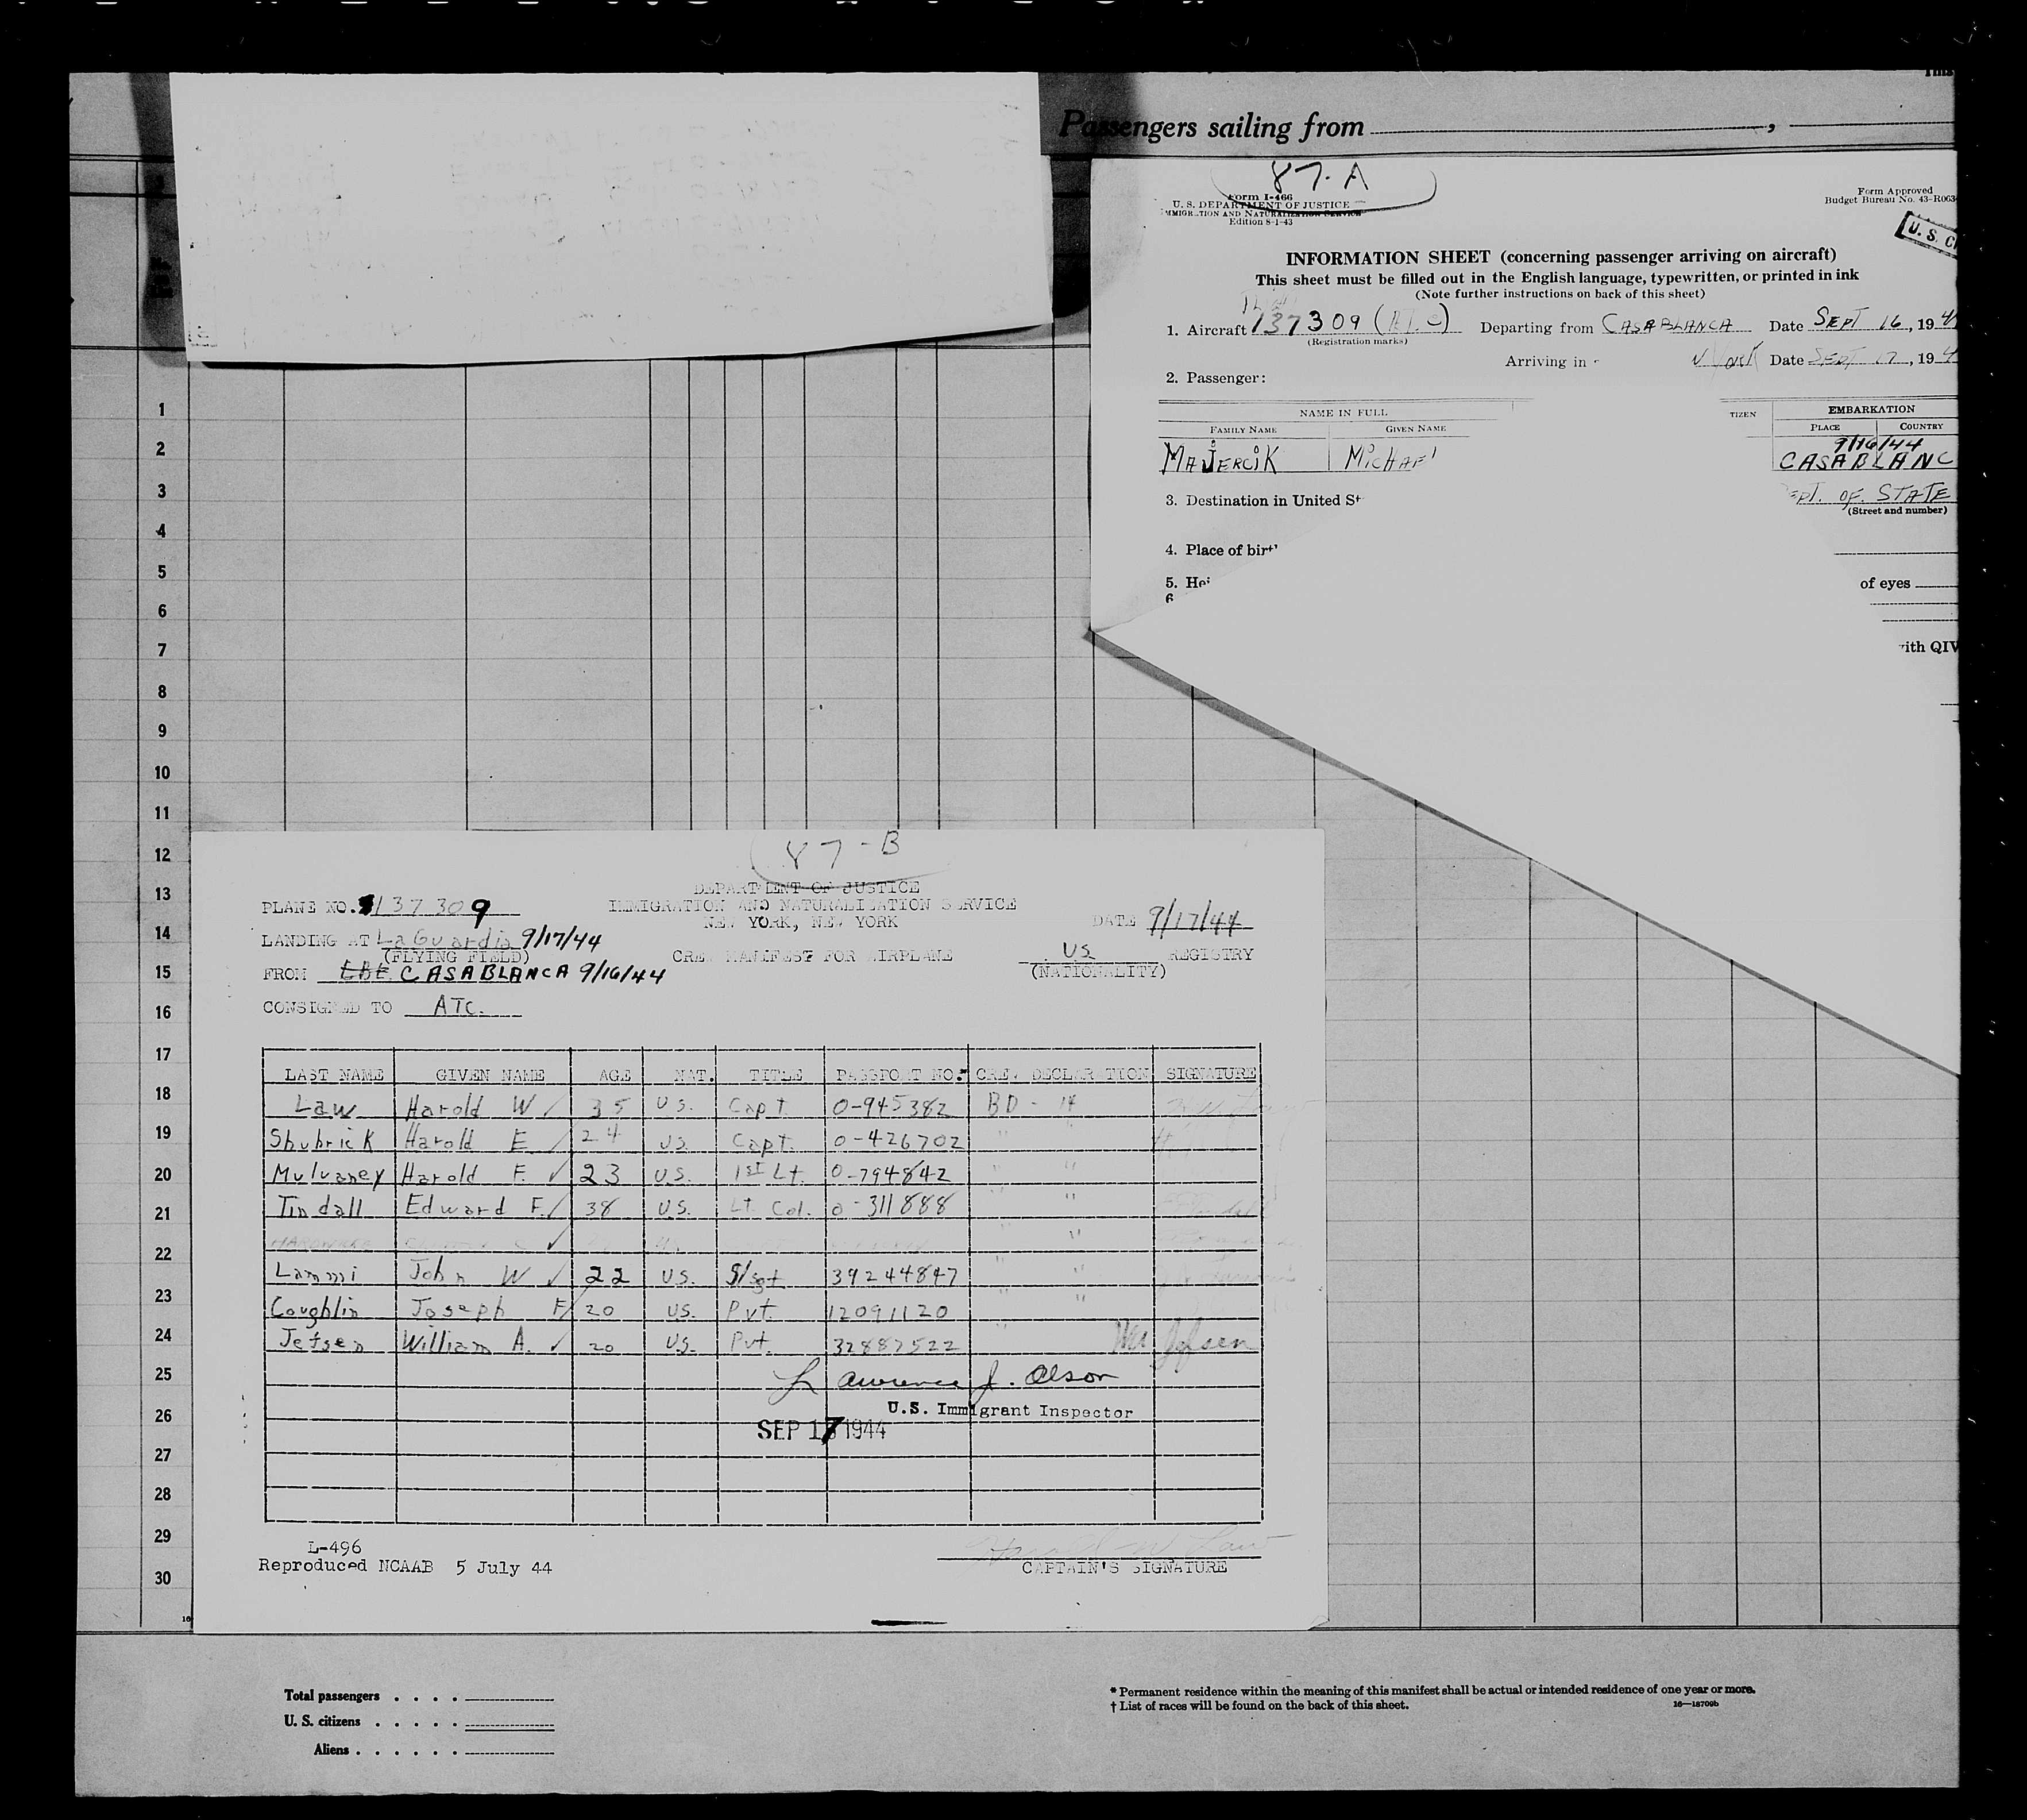 Passengers sailing from
87-A
Form I-466
U. S. DEPARTMENT OF JUSTICE
IMMIGRATION AND NATURALIZATION SERVICE
Edition 8-1-43
Form Approved
Budget Bureau No. 43-R063
U. S. C
INFORMATION SHEET (concerning passenger arriving on aircraft)
This sheet must be filled out in the English language, typewritten, or printed in ink
(Note further instructions on back of this sheet)
1. Aircraft 137309 (A.T.C) Departing from CASABLANCA Date SEPT 16, 194
(Registration marks)
Arriving in N York Date SEPT 17, 194
2. Passenger:
NAME IN FULL TIZEN EMBARKATION
FAMILY NAME GIVEN NAME PLACE COUNTRY
9/16/44
MAJERCIK MICHAE CASABLANC
3. Destination in United St EPT. OF. STATE
(Street and number)
4. Place of birt
5. Hei of eyes
6
with QIV
1
2
3
4
5
6
7
8
9
10
11
12
13
14
15
16
17
18
19
20
21
22
23
24
25
26
27
28
29
30
87-B
DEPARTMENT OF JUSTICE
PLANE NO. 137309 IMMIGRATION AND NATURALIZATION SERVICE
NEW YORK, NEW YORK DATE 9/17/44
LANDING AT LaGuardia 9/17/44
(FLYING FIELD) CREW MANIFEST FOR AIRPLANE US REGISTRY
FROM CASABLANCA 9/16/44 (NATIONALITY)
CONSIGNED TO ATC.
LAST NAME GIVEN NAME AGE NAT. TITLE PASSPORT NO. CREW DECLARATION SIGNATURE
Law Harold W 35 U S. Capt 0-945382 BD - 14
Shubrick Harold E 24 US Capt. 0-426702 " "
Mulvaney Harold F. 23 U.S. 1st Lt. 0-794842 " "
Tindall Edward F. 38 U.S. Lt. Col. 0-311888 " "
" "
Lammi John W 22 US. S/sgt 39244847 " "
Coughlin Joseph F 20 US. Pvt. 12091120 " "
Jefsen William A. 20 U.S. Pvt. 32887522 " Wm Jefsen
Lawrence J. Olson
U.S. Immigrant Inspector
SEP 17 1944
L-496
Reproduced NCAAB 5 July 44
Harold W Law
CAPTAIN'S SIGNATURE
Total passengers . . . .
U. S. citizens . . . . .
Aliens . . . . . .
* Permanent residence within the meaning of this manifest shall be actual or intended residence of one year or more.
† List of races will be found on the back of this sheet. 16—18709b